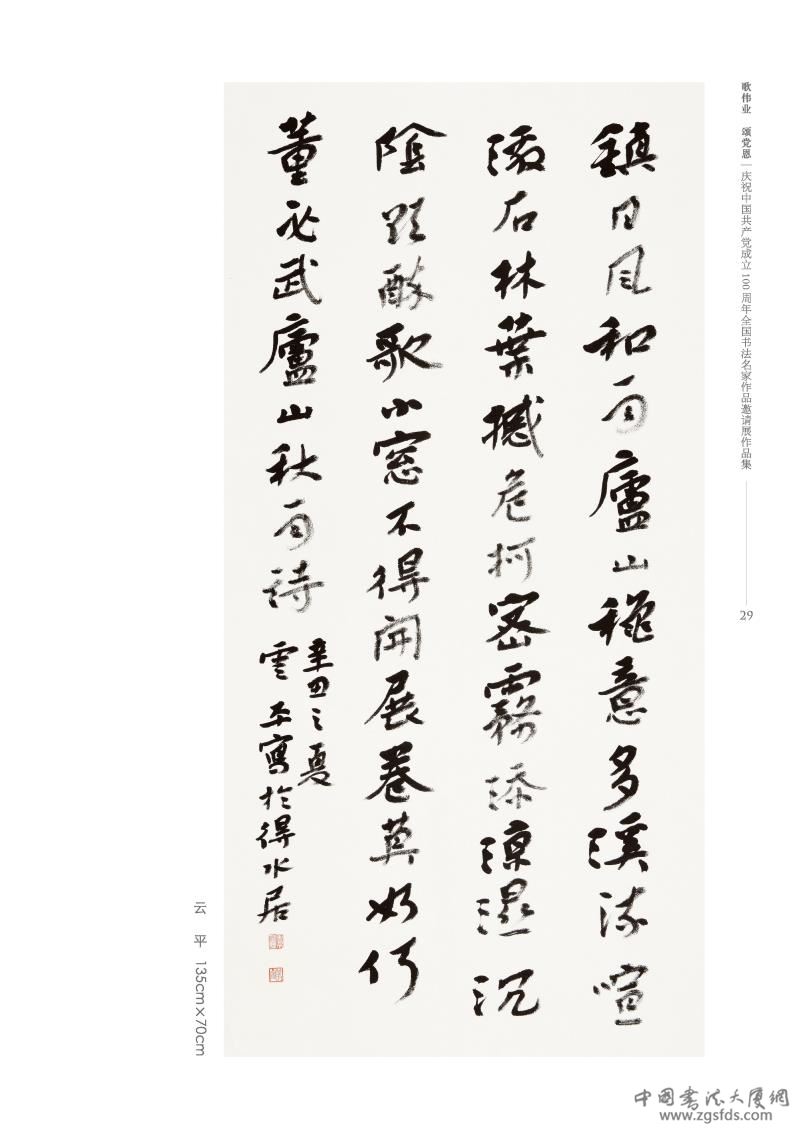 歌伟业 颂党恩 | 庆祝中国共产党成立100周年全国书法名家作品邀请展作品集
29
鎮日風和雨廬山穐意多溪流喧
漱石林葉撼危柯密霧添涼濕沉
陰歌小窻不得開展卷莫奈何
董必武廬山秋雨詩
辛丑之夏
雲平寫於得水居
云 平 135cm×70cm
中国书法大厦網
www.zgsfds.com